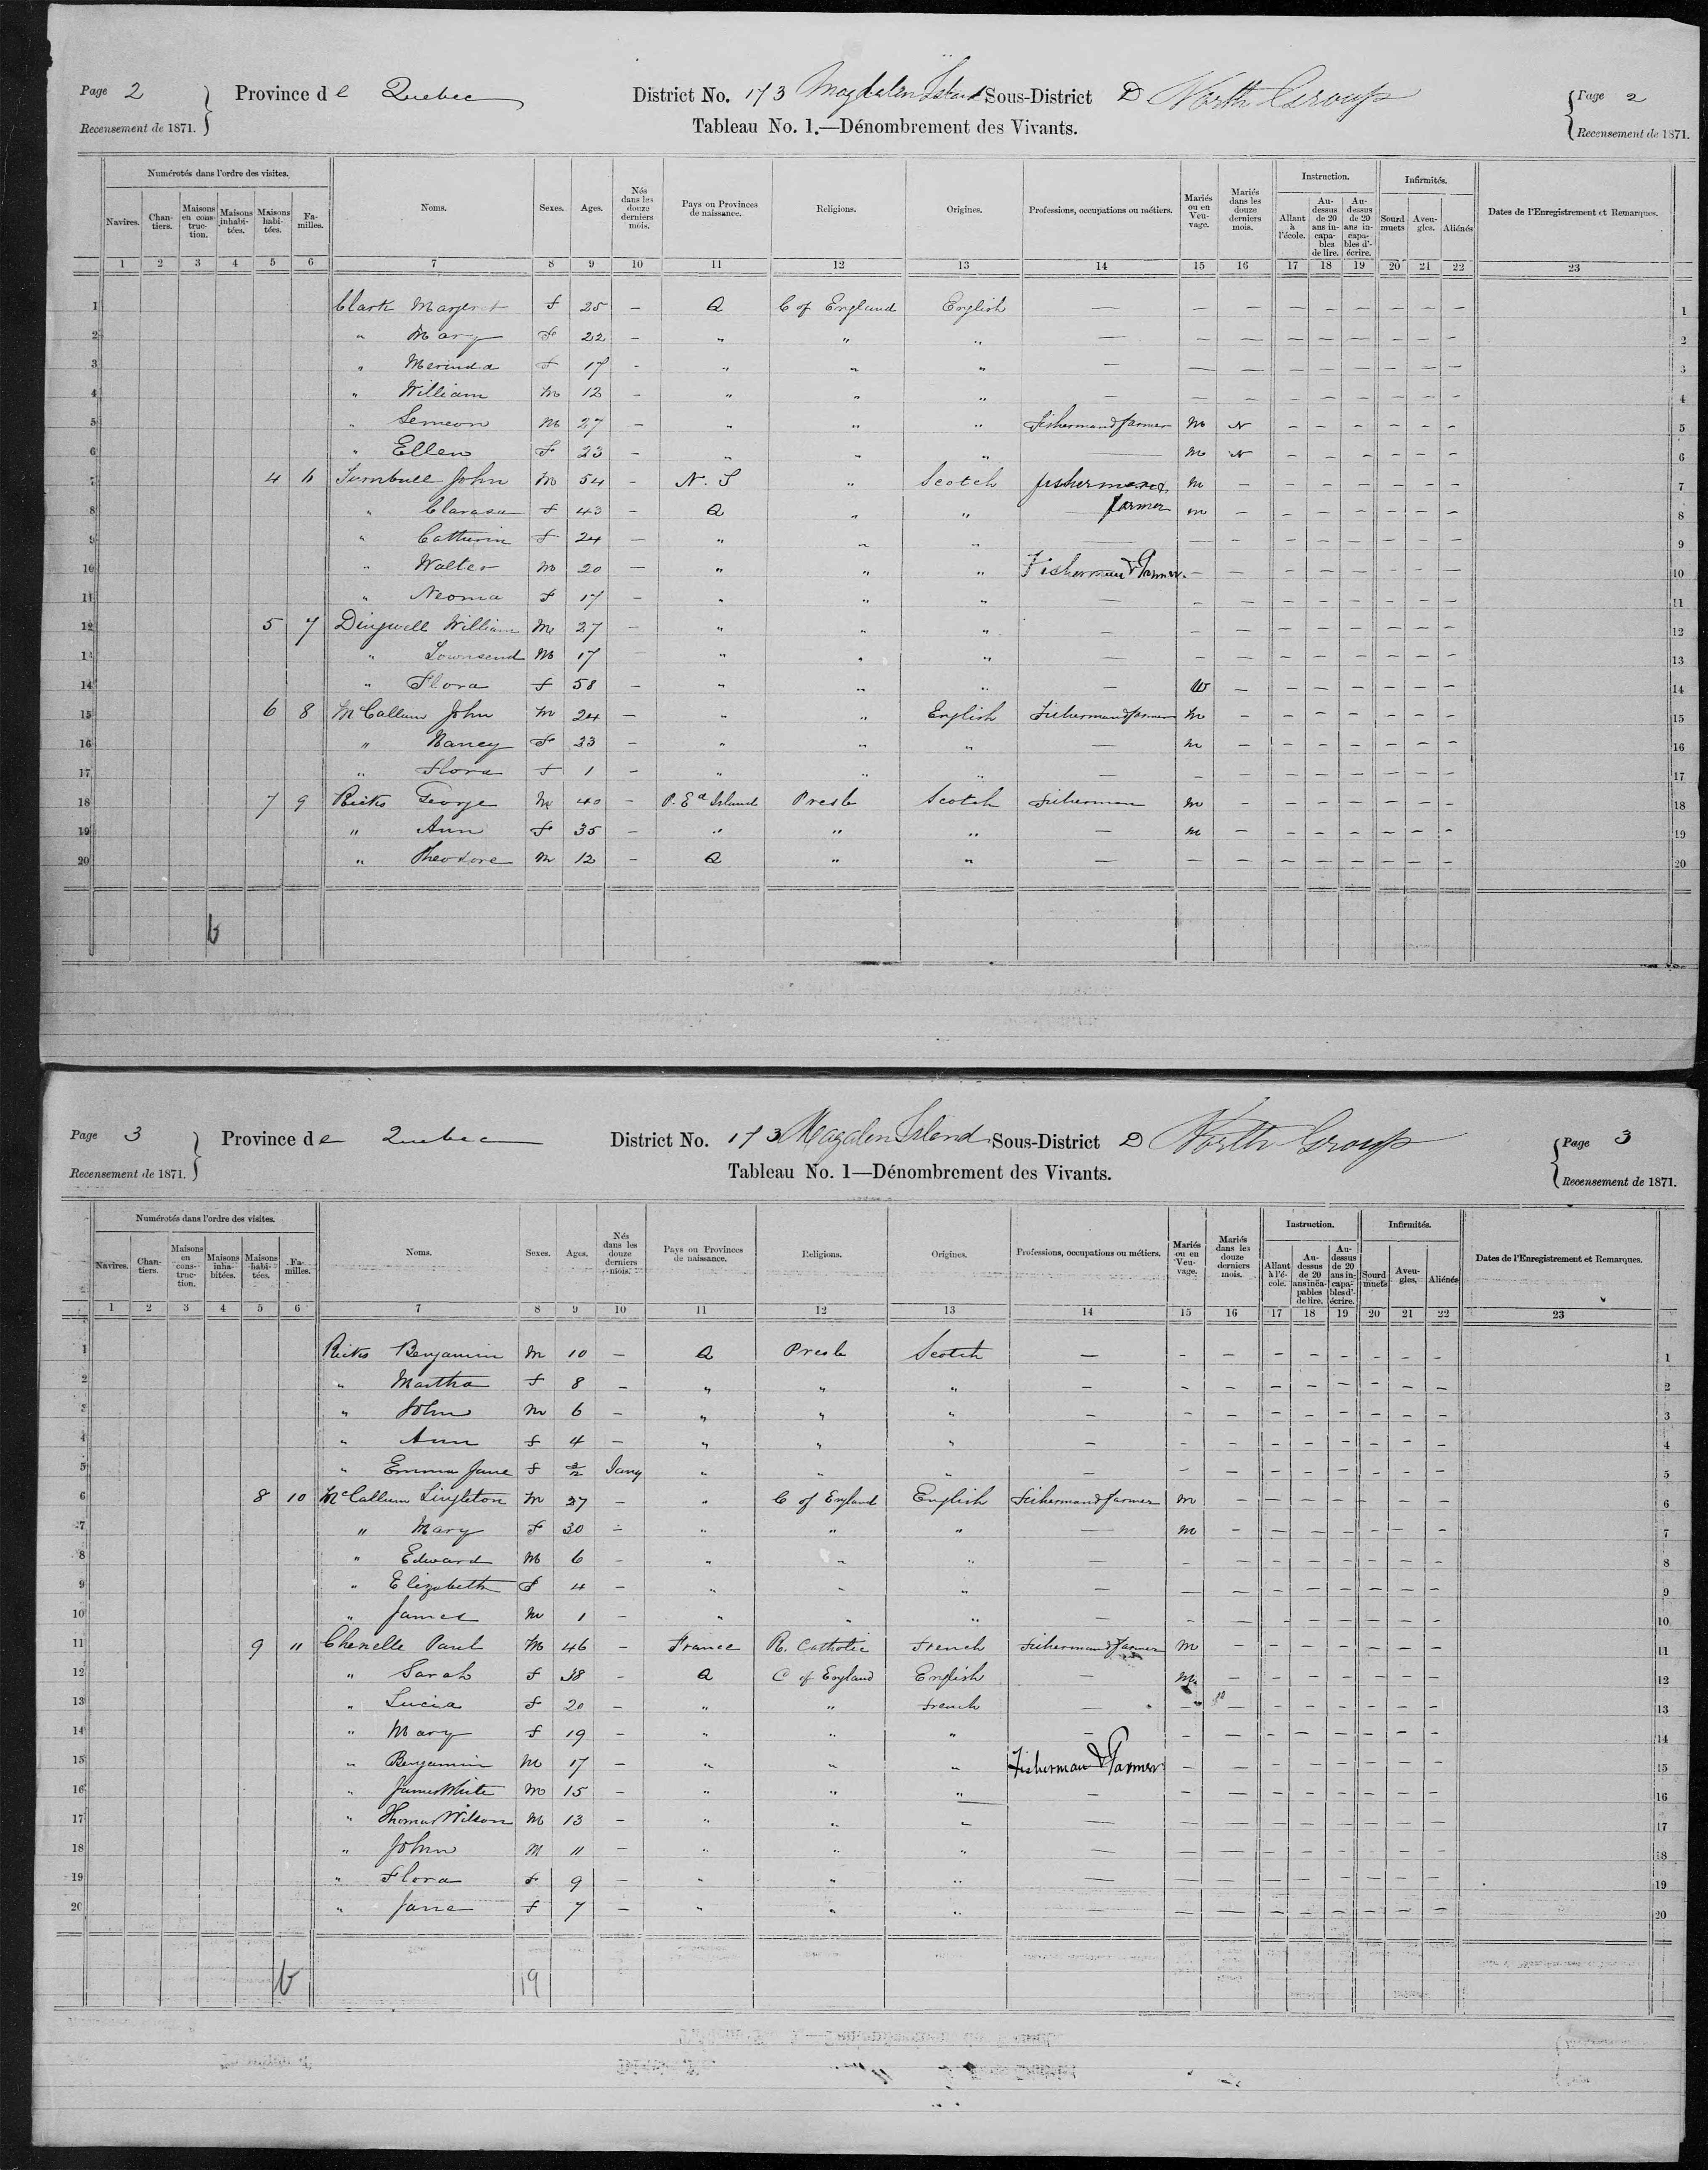 Page 2 Province de Quebec District No. 173 Magdalen Island Sous-District D North Group Page 2
Recensement de 1871. Tableau No. 1.—Dénombrement des Vivants. Recensement de 1871.
Numérotés dans l'ordre des visites. Noms. Sexes. Ages. Nés dans les douze derniers mois. Pays ou Provinces de naissance. Religions. Origines. Professions, occupations ou métiers. Mariés ou en Veuvage. Mariés dans les douze derniers mois. Instruction. Infirmités. Dates de l'Enregistrement et Remarques.
Navires. Chantiers. Maisons en construction. Maisons inhabitées. Maisons habitées. Familles. Allant à l'école. Au-dessus de 20 ans incapables de lire. Au-dessus de 20 ans incapables d'écrire. Sourd muets Aveugles. Aliénés
1 2 3 4 5 6 7 8 9 10 11 12 13 14 15 16 17 18 19 20 21 22 23
1 Clark Margeret F 25 — Q C of England English — — — — — — — — — 1
2 " Mary F 22 — " " " — — — — — — — — — 2
3 " Merinda F 17 — " " " — — — — — — — — — 3
4 " William M 12 — " " " — — — — — — — — — 4
5 " Semeon M 27 — " " " Fisherman & farmer M N — — — — — — 5
6 " Ellen F 23 — " " " — M N — — — — — — 6
7 4 6 Turnbull John M 54 — N. S " Scotch fisherman & M — — — — — — — 7
8 " Clarasa F 43 — Q " " farmer M — — — — — — — 8
9 " Catherin F 24 — " " " — — — — — — — — — 9
10 " Walter M 20 — " " " Fisherman & Farmer — — — — — — — — 10
11 " Neoma F 17 — " " " — — — — — — — — — 11
12 5 7 Dingwell William M 27 — " " " — — — — — — — — — 12
13 " Townsend M 17 — " " " — — — — — — — — — 13
14 " Flora F 58 — " " " — W — — — — — — — 14
15 6 8 McCallum John M 24 — " " English Fisherman & farmer M — — — — — — — 15
16 " Nancy F 23 — " " " — M — — — — — — — 16
17 " Flora F 1 — " " " — — — — — — — — — 17
18 7 9 Ricks George M 40 — P. Ed Island Presb Scotch Fisherman M — — — — — — — 18
19 " Ann F 35 — " " " — M — — — — — — — 19
20 " Theodore M 12 — Q " " — — — — — — — — — 20
Page 3 Province de Quebec District No. 173 Magalen Island Sous-District D North Group Page 3
Recensement de 1871. Tableau No. 1—Dénombrement des Vivants. Recensement de 1871.
Numérotés dans l'ordre des visites. Noms. Sexes. Ages. Nés dans les douze derniers mois. Pays ou Provinces de naissance. Religions. Origines. Professions, occupations ou métiers. Mariés ou en Veuvage. Mariés dans les douze derniers mois. Instruction. Infirmités. Dates de l'Enregistrement et Remarques.
Navires. Chantiers. Maisons en construction. Maisons inhabitées. Maisons habitées. Familles. Allant à l'école. Au-dessus de 20 ans incapables de lire. Au-dessus de 20 ans incapables d'écrire. Sourd muets Aveugles. Aliénés
1 2 3 4 5 6 7 8 9 10 11 12 13 14 15 16 17 18 19 20 21 22 23
1 Ricks Benjamin M 10 — Q Presb Scotch — — — — — — — — — 1
2 " Martha F 8 — " " " — — — — — — — — — 2
3 " John M 6 — " " " — — — — — — — — — 3
4 " Ann F 4 — " " " — — — — — — — — — 4
5 " Emma Jane F Jany " " " — — — — — — — — — 5
6 8 10 McCallum Singleton M 37 — " C of England English Fisherman & farmer M — — — — — — — 6
7 " Mary F 30 — " " " — M — — — — — — — 7
8 " Edward M 6 — " " " — — — — — — — — — 8
9 " Elizabeth F 4 — " " " — — — — — — — — — 9
10 " James M 1 — " " " — — — — — — — — — 10
11 9 11 Chenelle Paul M 46 — France R. Catholic French Fisherman & farmer M — — — — — — — 11
12 " Sarah F 38 — Q C of England English — M — — — — — — — 12
13 " Lucia F 20 — " " French — — — — — — — — — 13
14 " Mary F 19 — " " " — — — — — — — — — 14
15 " Benjamin M 17 — " " " Fisherman & Farmer — — — — — — — — 15
16 " James White M 15 — " " " — — — — — — — — — 16
17 " Thomas Wilson M 13 — " " " — — — — — — — — — 17
18 " John M 11 — " " " — — — — — — — — — 18
19 " Flora F 9 — " " " — — — — — — — — — 19
20 " Jane F 7 — " " " — — — — — — — — — 20
19